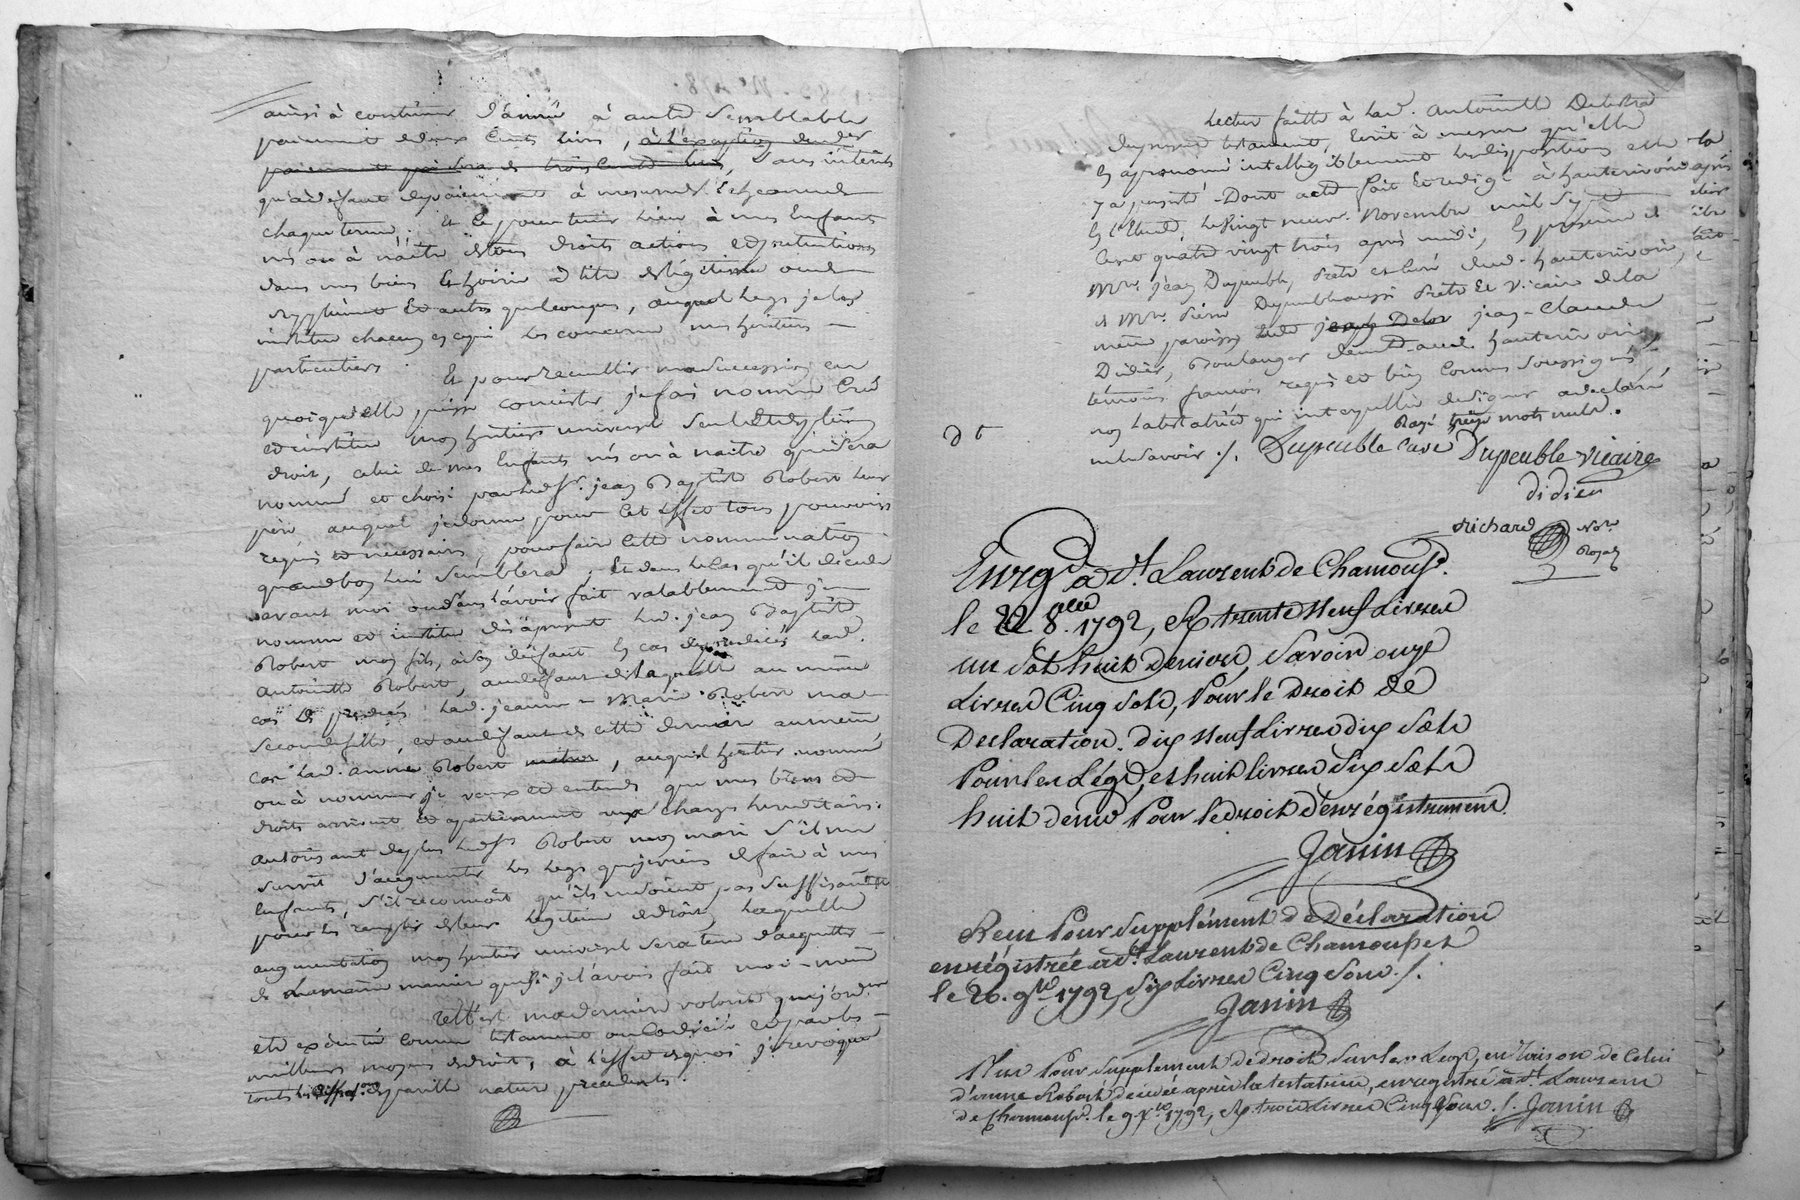 ainsi à continuer d'année à autre semblable
paiement de deux cents livres, à l'exception du der
paiement qui sera de trois cents livres, sans intérêts
qu'à défaut de paiement à mesure d'échéance de
chaque terme. Et ce pour tenir lieu à mes enfants
nés ou à naître de tous droits actions et prétentions
dans mes biens et hoirie à titre de légitime ou de
supplément et autres quelconques, auquel legs je les
institue chacun en ce qui les concerne mes héritiers
particuliers.
Et pour recueillir ma succession en
quoiqu'elle puisse consister je fais nomme crée
et institue mon héritier universel seul et de plein
droit, celui de mes enfants nés ou à naître qui sera
nommé et choisi par led. Sr. jean Baptiste Robert leur
père, auquel je donne pour cet effet tous pouvoirs
requis et necessaires, pour faire cette nommination
quand bon lui semblera, Et dans le cas qu'il décede
avant moi ou sans l'avoir fait valablement je
nomme et institue dès à présent led. jean Baptiste
Robert mon fils, à son défaut en cas de prédécès lad.
antoinette Robert, au défaut de laquelle au même
cas de prédécès lad. jeanne-Marie Robert ma
seconde fille, et au défaut de cette derniere au même
cas lad. anne Robert, auquel héritier nommé
ou à nommer je veux et entends que mes biens et
droits arrivent et apartiennent aux charges hereditaires.
autorisant de plus led. Sr. Robert mon mari s'il me
survit d'augmenter les legs que je viens de faire à mes
enfants, s'il reconnoit qu'ils ne soient pas suffisants
pour les remplir de leur legitime de droit, laquelle
augmentation mon héritier universel sera tenu d'acquitter
de la même manière que si je l'avois fait moi-même
Telle est ma derniere volonté que j'ordonne
etre exécutée comme testament ou codicile et par les
meilleurs moyens de droit, à l'effet de quoi je revoque
touttes dispositions de pareille nature précédentes.
Lecture faitte à lad. Antoinette
du présent testament, écrit à mesure qu'elle
en a prononcé intelligiblement les dispositions elle
y a persisté. Dont acte fait et redigé à hauterivoire après
en l'Etude, le vingt neuf Novembre mil sept
cent quatre vingt trois après midi, En présence de
Mre. jean Dupeuble, Prêtre et curé dud. hauterivoire,
et Mre. Pierre Dupeuble aussi Prêtre et Vicaire de la
même paroisse jean-Claude
Didier, Boulanger demt. aud. hauterivoire,
témoins françois requis et bien connus soussignés
non la testatrice qui interpellée de signer a declaré
ne le savoir ./. Rayé treize mots nuls.
D t
Dupeuble Curé Dupeuble vicaire
didier
Richard Nore
Royal
Enrgé à St. Laurent de Chamousst.
le 22 8bre 1792, Rx trente Neuf Livres
un Sol huit deniers, Savoir onze
Livres Cinq Sols, Pour le Droit de
Declaration. dix Neuf Livres dix Sols
Pour les Légs, et huit livres Six Sols
huit denrs Pour le droit d'enrégistrement.
Janin
Reçu Pour Supplément de Déclaration
enrégistrée à St. Laurent de Chamousset
le 26. 9bre 1792, Six Livres Cinq Sous ./.
Janin
Plus Pour Supplement de droit Sur les Legs, en raison de Celui
d'anne Robert décédée après la testatrice, enregistré à St. Laurent
de Chamoust. le 9. Xbre 1792, Rx trois Livres Cinq Sous ./. Janin